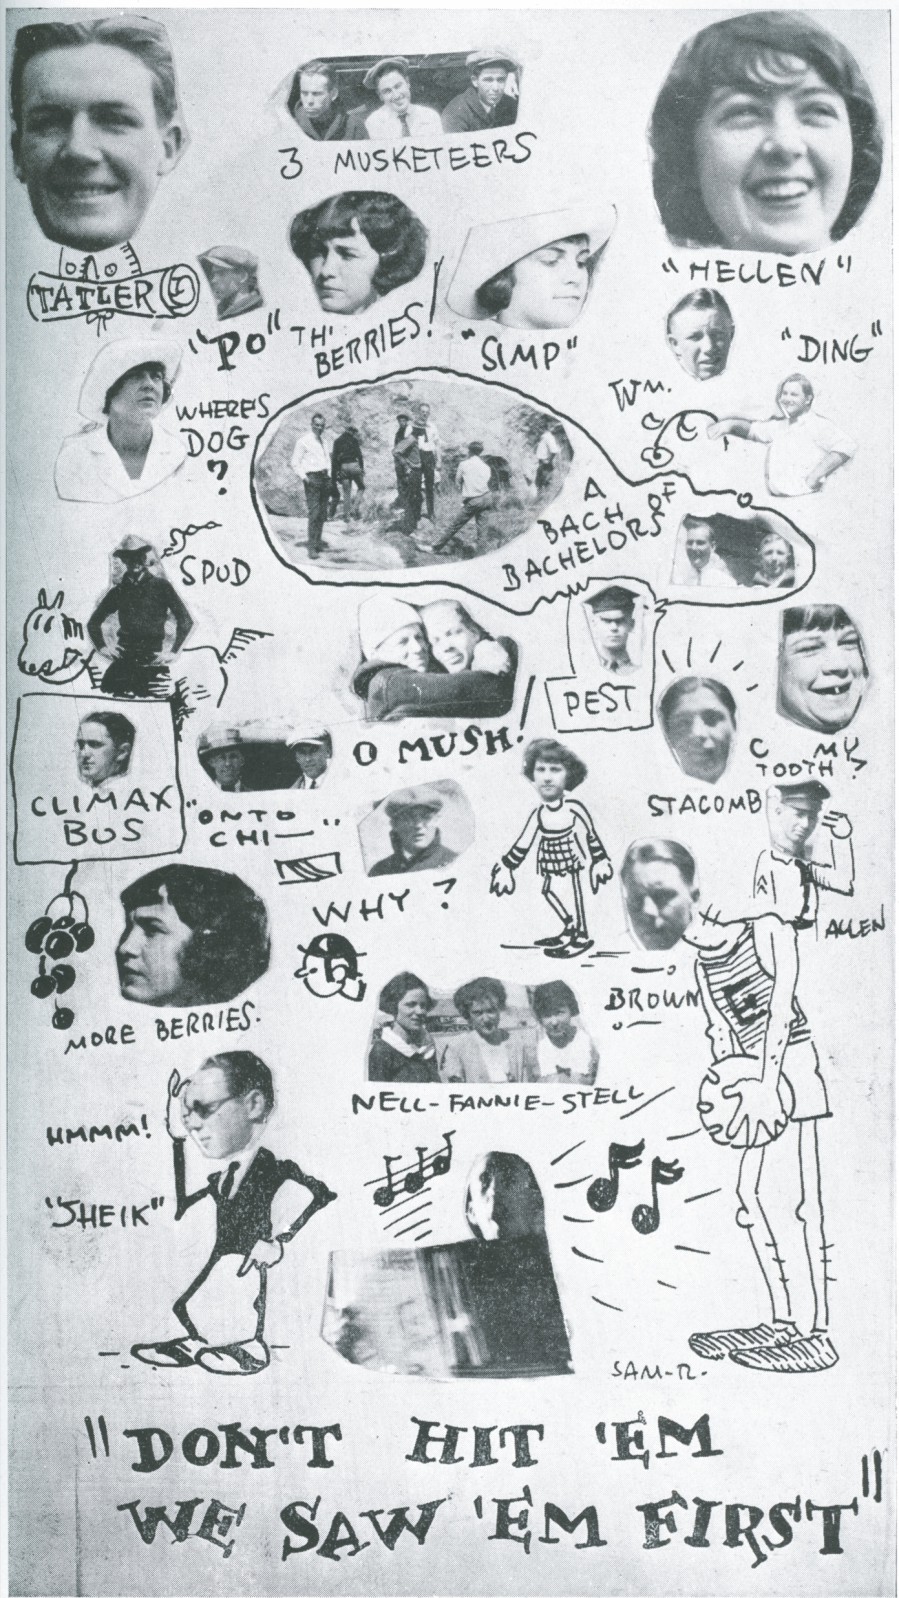 3 MUSKETEERS
"HELLEN"
TATLER
"PO"
TH'
BERRIES!
"SIMP"
"DING"
WM.
WHERE'S
DOG
?
A
BACH OF
BACHELORS
SPUD
PEST
O MUSH!
C MY
TOOTH?
STACOMB
CLIMAX
BUS
"ONTO
CHI—"
WHY?
ALLEN
BROWN
MORE BERRIES.
NELL-FANNIE-STELL
HMMM!
"SHEIK"
SAM-R-
"DON'T HIT 'EM
WE SAW 'EM FIRST"